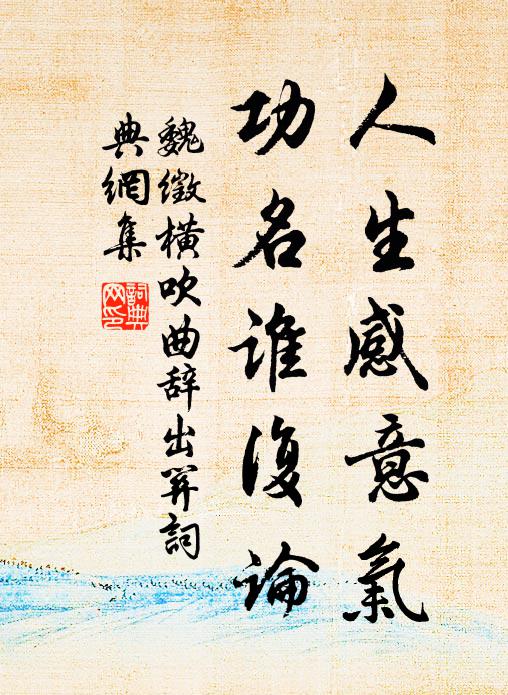 人生感意氣
功名誰復論
魏徵橫吹曲辭出關詞
典網集
詞典網印